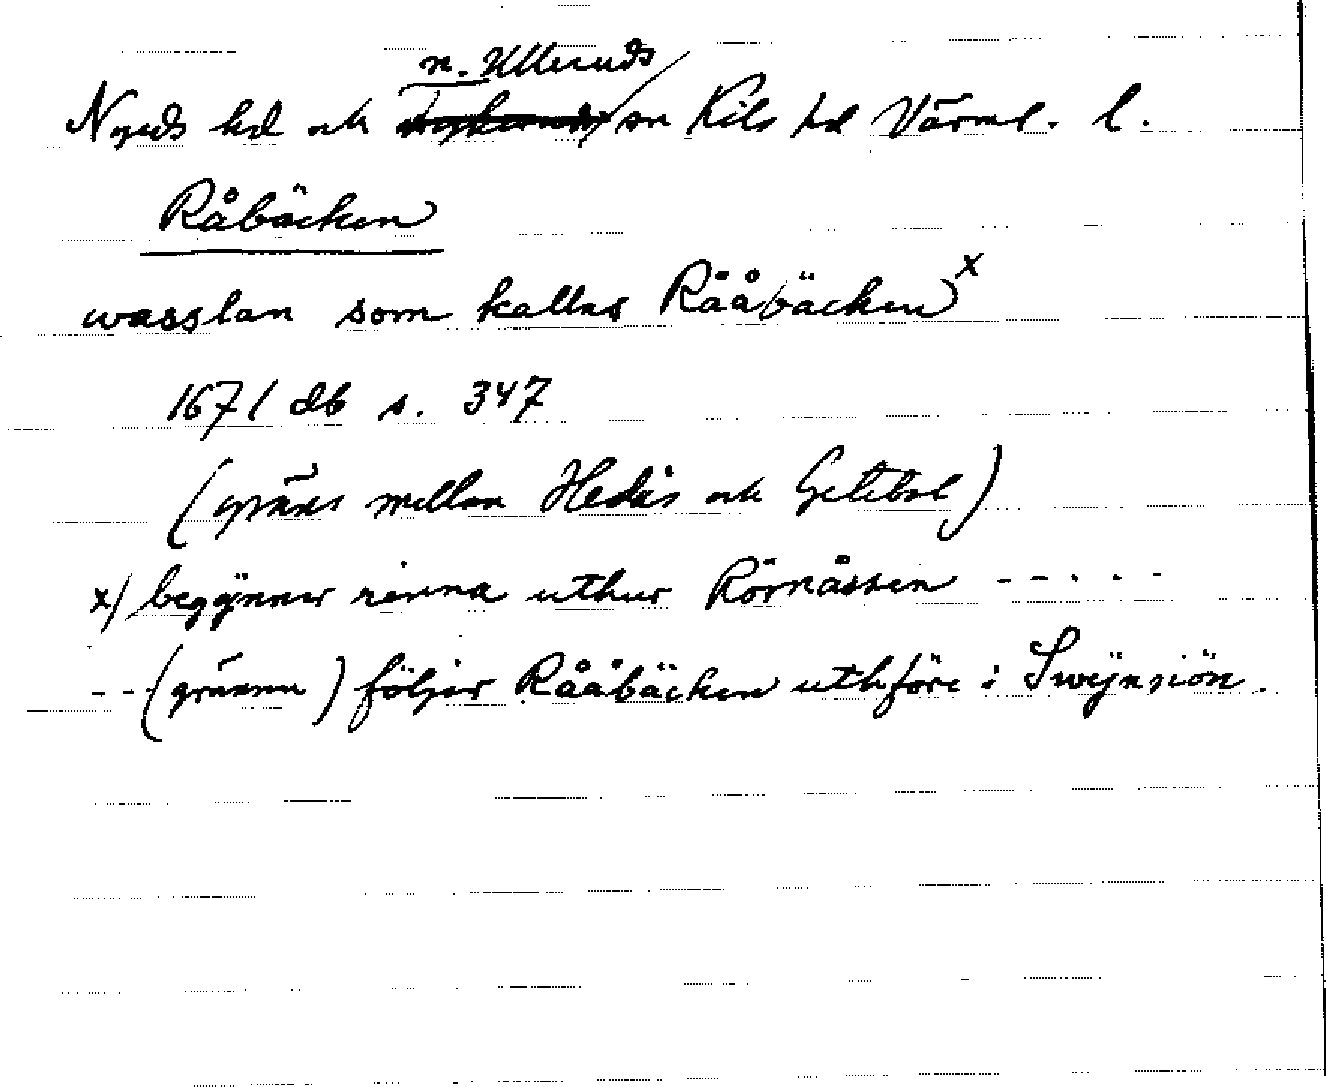 n. Ulleruds
Nyeds hd och sn Kils hd Värml. l.
Råbäcken
wasslan som kallas Rååbäcken x
1671 db s. 347
(gräns mellan Hedås och Getebol)
x) begÿnner rinna uthur Rörmåssen - - - - -
- - (gränsen) följer Rååbäcken uthföre i Swÿnsiön.